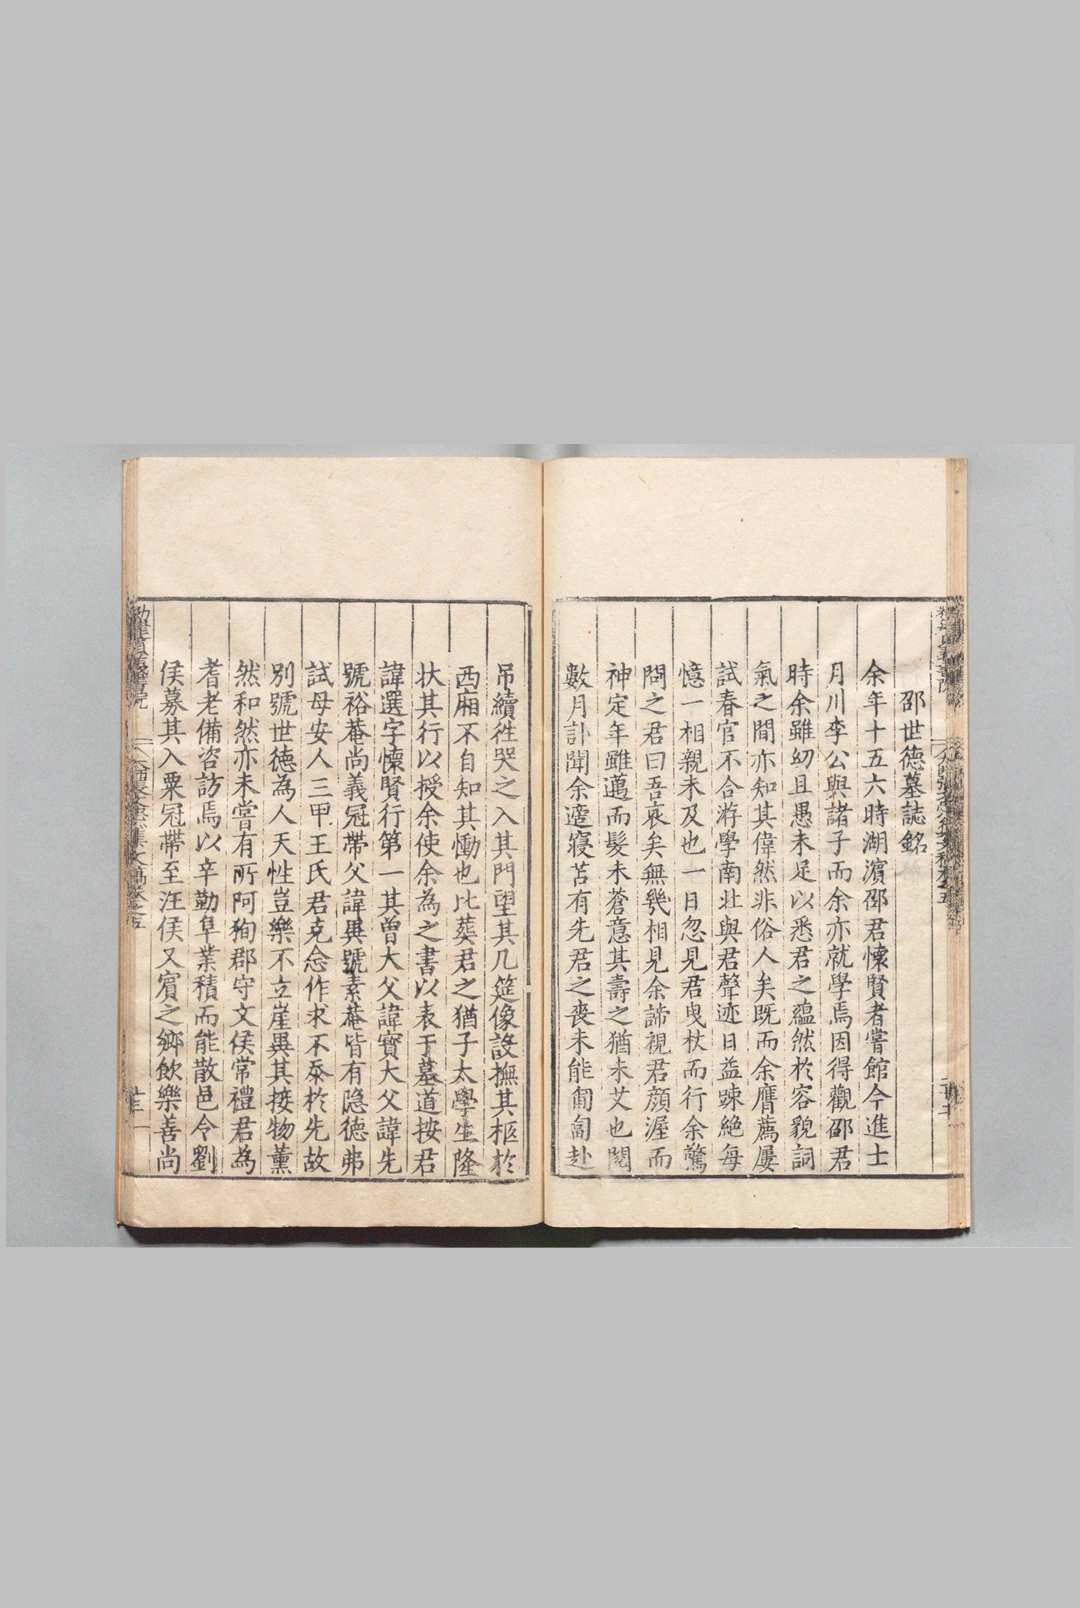 邵世德墓誌銘
余年十五六時湖濵邵君懐賢者甞館今進士
月川李公與諸子而余亦就學焉因得觀邵君
時余雖幼且愚未足以悉君之蘊然於容貌詞
氣之間亦知其偉然非俗人矣既而余膺薦屢
試春官不合游學南北與君聲迹日益踈絶每
憶一相親未及也一日忽見君曳杖而行余驚
問之君曰吾衰矣無幾相見余諦視君顔渥而
神定年雖邁而髮未蒼意其壽之猶未艾也閱
數月訃聞余遭寢苫有先君之喪未能匍匐赴
吊續徃哭之入其門望其几筵像設撫其柩於
西廂不自知其慟也比葬君之猶子太學生隆
狀其行以授余使余為之書以表于墓道按君
諱選字懐賢行第一其曾大父諱寳大父諱先
號裕菴尚義冠帶父諱異號素菴皆有隐德弗
試母安人三甲王氏君克念作求不忝於先故
別號世德為人天性豈樂不立崖異其接物薫
然和然亦未嘗有所阿殉郡守文侯常禮君為
耆老備咨訪焉以辛勤阜業積而能散邑令劉
侯募其入粟冠帶至汪侯又賓之鄉飲樂善尚